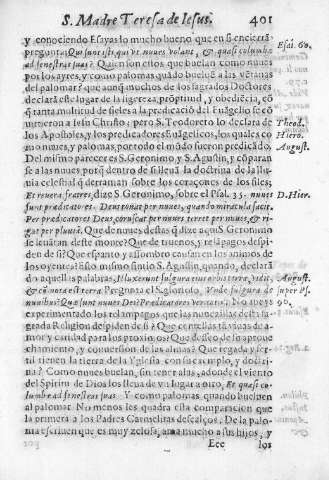 S. Madre Teresa de Iesus. 401
y conociendo Esayas lo mucho bueno que en si encierra
pregunta: Qui sunt isti, qui vt nubes volant, & quasi columbæ
ad fenestras suas? Quien son estos que buelan como nubes
por los ayres, y como palomas quãdo buelue a las vẽtanas
del palomar? que aunq̃ muchos de los sagrados Doctores
declarã este lugar de la ligereza, prõptitud, y obediẽcia, cõ
q̃ tanta multitud de fieles a la predicaciõ del Euãgelio se cõ
uirtieron a Iesu Christo; pero S. Teodoreto lo declara de
los Apostoles, y los predicadores Euãgelicos, los quales co
mo nuues, y palomas, por todo el mũdo fueron predicãdo.
Del mismo parecer es S. Geronimo, y S. Agustin, y cõparan
se a las nuues porq̃ dentro de si lleuã la doctrina de la llu-
uia celestial q̃ derraman sobre los coraçones de los fieles;
Et reuera fratres, dize S. Geronimo, sobre el Psal. 35. nubes
sunt prædicatores. Deus tonat per nubes, quando miracula facit.
Per prædicatores Deus coruscat per nubes, terret per nubes, & ri-
gat per pluuiã. Que de nubes destas q̃ dize aqui S. Geronimo
se leuãtan deste monte? Que de truenos, y relãpagos despi-
den de si? Que espanto y assombro causan en los animos de
los oyentes? assi lo mismo sintio S. Agustin, quando, declarã
do aquellas palabras, Illuxerunt fulgura tua orbi terræ, vidit,
& cõmota est terra. Pregunta el S. glorioso, Vnde fulgura de
nubibus? Quæ sunt nubes Dei? Prædicatores veritatis. No aueys
experimentado los relampagos que las nuuezillas desta sa-
grada Religion despiden de si? Que centellas tã viuas de a-
mor y caridad para los proximos? Que desseo de su aproue
chamiento, y conuersion de las almas? Que regada y fer-
til tienen la tierra de la Yglesia con su exemplo, y doctri-
na? Como nubes buelan, sin tener alas, adonde el viento
del Spiritu de Dios los lleua de vn lugar a otro, Et quasi co-
lumbæ ad fenestras suas. Y como palomas quando bueluen
al palomar. No menos les quadra esta comparacion que
la primera a los Padres Carmelitas descalços. De la palo-
ma escriuen que es muy zelosa, ama mucho a sus hijos, y
Eee los
Esai. 60.
Theod.
Hiero.
August.
D. Hier.
August.
super Ps.
96.